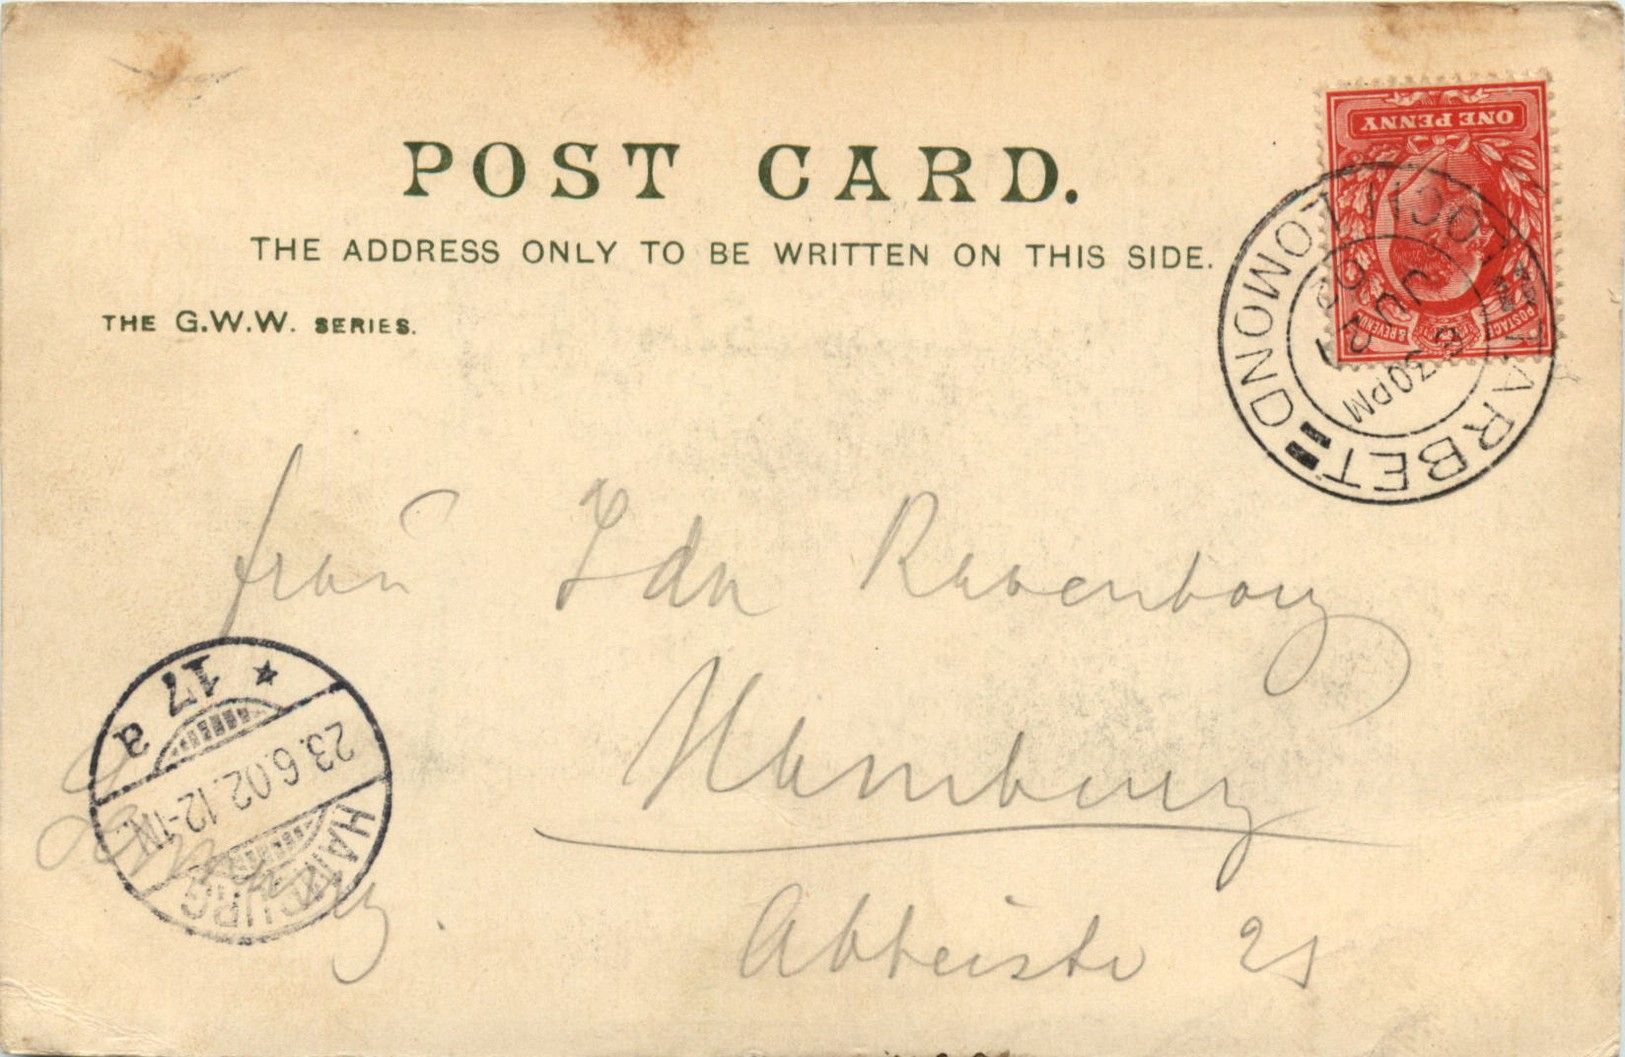 POST CARD.
THE ADDRESS ONLY TO BE WRITTEN ON THIS SIDE.
THE G.W.W. SERIES.
ONE PENNY
POSTAGE & REVENUE
TARBET LOCH LOMOND
6 30PM
JU 21
02
Frau Ida Ravenborg
Hamburg
Abteistr 21
Germany.
HAMBURG
23.6.02.12-1N.
* 17 a